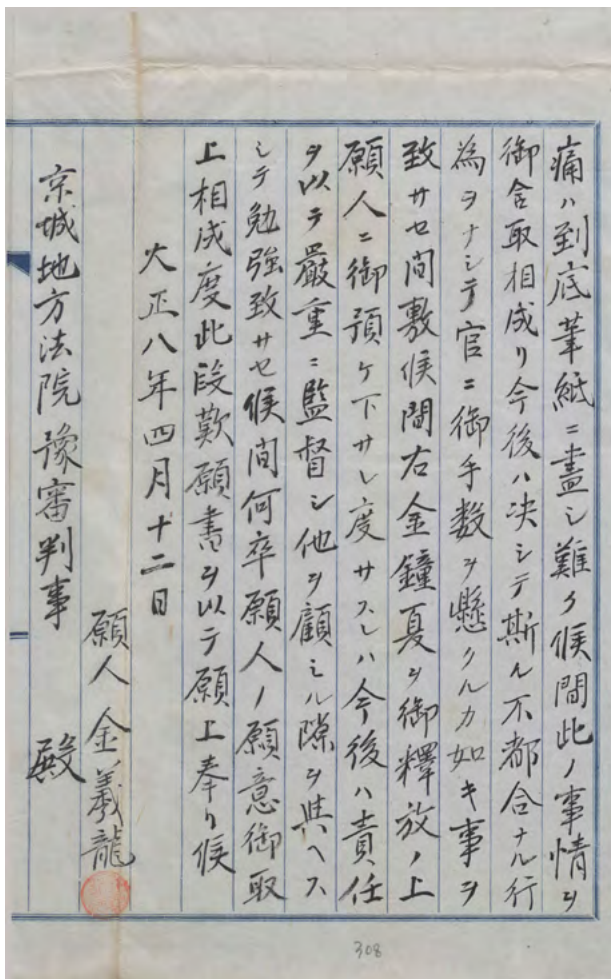 痛ハ到底筆紙ニ盡シ難ク候間此ノ事情ヲ
御含取相成リ今後ハ决シテ斯ル不都合ナル行
為ヲナシテ官ニ御手数ヲ懸クルカ如キ事ヲ
致サセ間敷候間右金鐘夏ヲ御釋放ノ上
願人ニ御預ケ下サレ度サスレハ今後ハ責任
ヲ以テ嚴重ニ監督シ他ヲ顧ミル隙ヲ與ヘス
シテ勉強致サセ候間何卒願人ノ願意御取
上相成度此段歎願書ヲ以テ願上奉リ候
大正八年四月十二日
願人 金義龍
京城地方法院豫審判事 殿
308